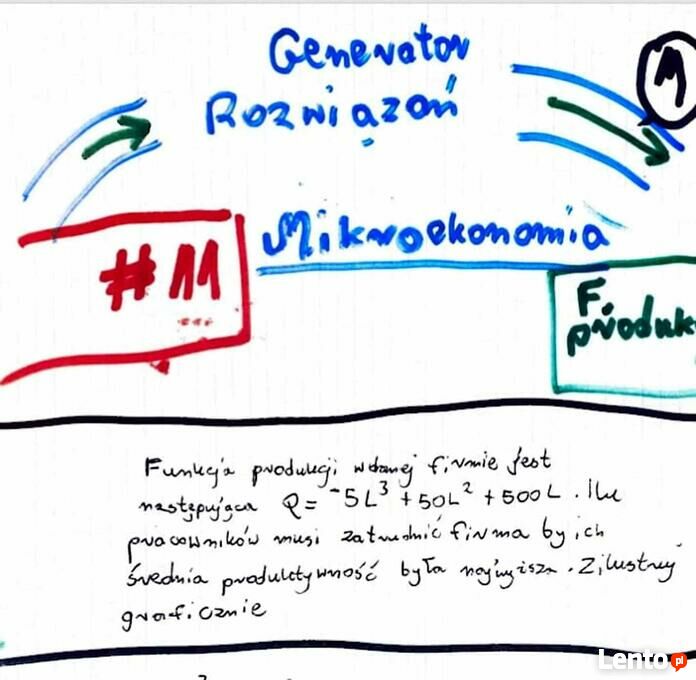 Generator
Rozwiązań
1
Mikroekonomia
#11
F.
produk
Funkcja produkcji w danej firmie jest
następująca Q = -5L³ + 50L² + 500L. Ilu
pracowników musi zatrudnić firma by ich
średnia produktywność była najwyższa. Zilustruj
graficznie
Lento.pl